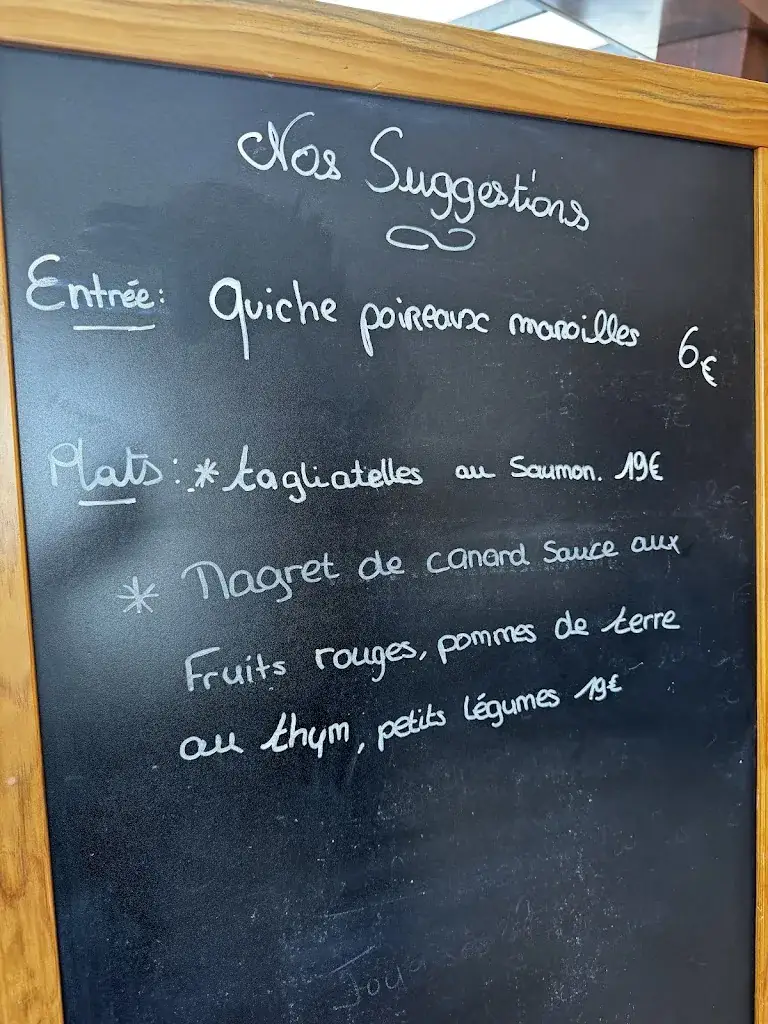 Nos Suggestions
Entrée: Quiche poireaux maroilles 6€
Plats: * tagliatelles au Saumon. 19€
* Magret de canard sauce aux
Fruits rouges, pommes de terre
au thym, petits légumes 19€